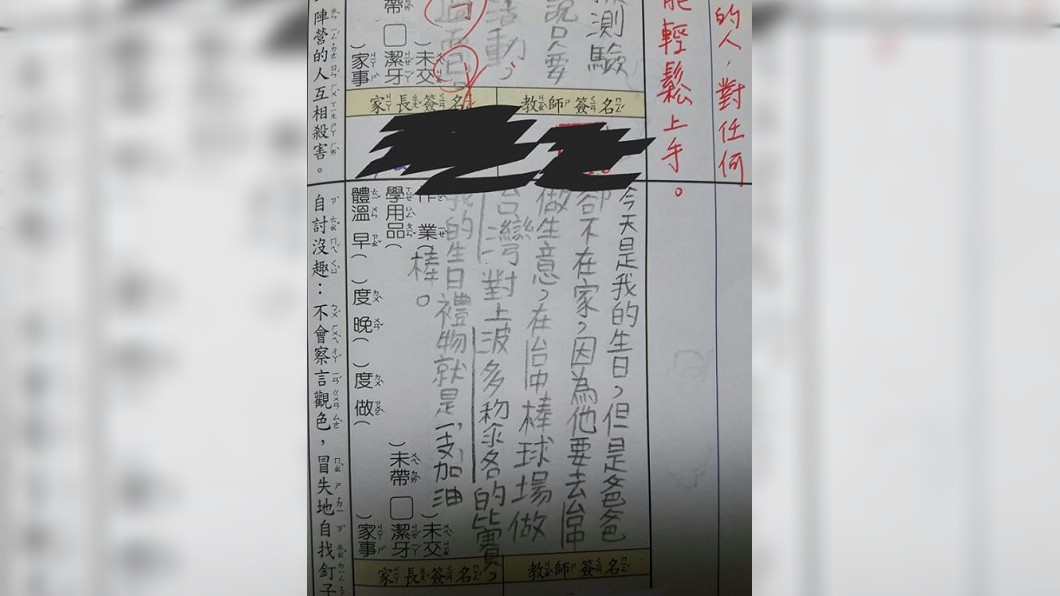 的人,對任何
能輕鬆上手。
測驗
說只要
活動,
畫面
作業(
未交
學用品(
未帶
潔牙
家事
教師簽名
家長簽名
陣營的人互相殺害。
今天是我的生日,但是爸爸
卻不在家,因為他要去台中
做生意,在台中棒球場做
台灣對上波多黎各的比賽,
我的生日禮物就是一支加油
棒。
作業(
未交
學用品(
未帶
潔牙
體溫早( )度晚( )度做(
)家事
教師簽名
家長簽名
自討沒趣:不會察言觀色,冒失地自找釘子